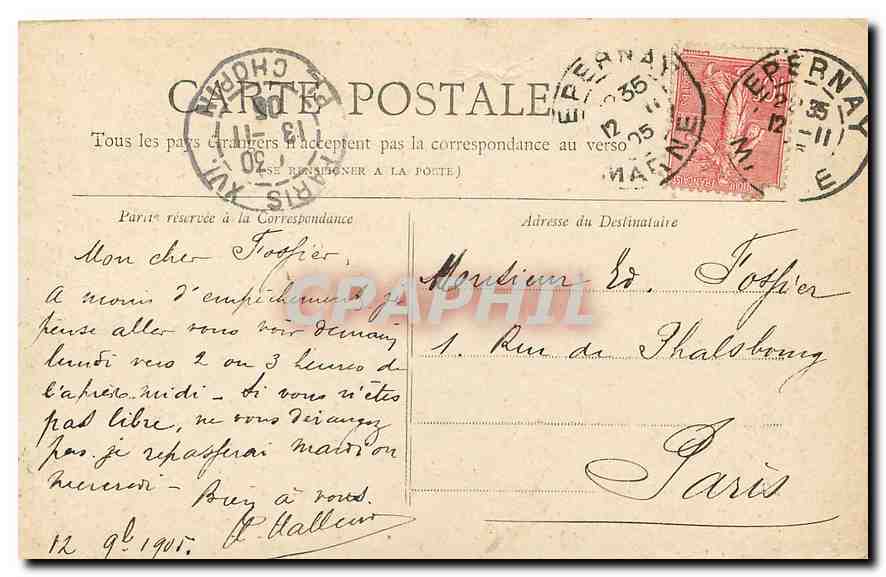 CARTE POSTALE
Tous les pays étrangers n'acceptent pas la correspondance au verso
(SE RENSEIGNER A LA POSTE)
PARIS XVI. R. CHOPIN
7 30
13 -11
05
EPERNAY
MARNE
35
12 11
05
EPERNAY
35
12 -11
POSTE FRANÇAISE
Partie réservée à la Correspondance
Mon cher Fossier,
A moins d'empêchement, je
pense aller vous voir demain
lundi vers 2 ou 3 heures de
l'après-midi - Si vous n'êtes
pas libre, ne vous dérangez
pas. je repasserai mardi ou
mercredi -
Bien à vous.
12 9bre 1905.
Adresse du Destinataire
Monsieur Ed. Fossier
1. Rue de Phalsbourg
Paris
CPAPHIL